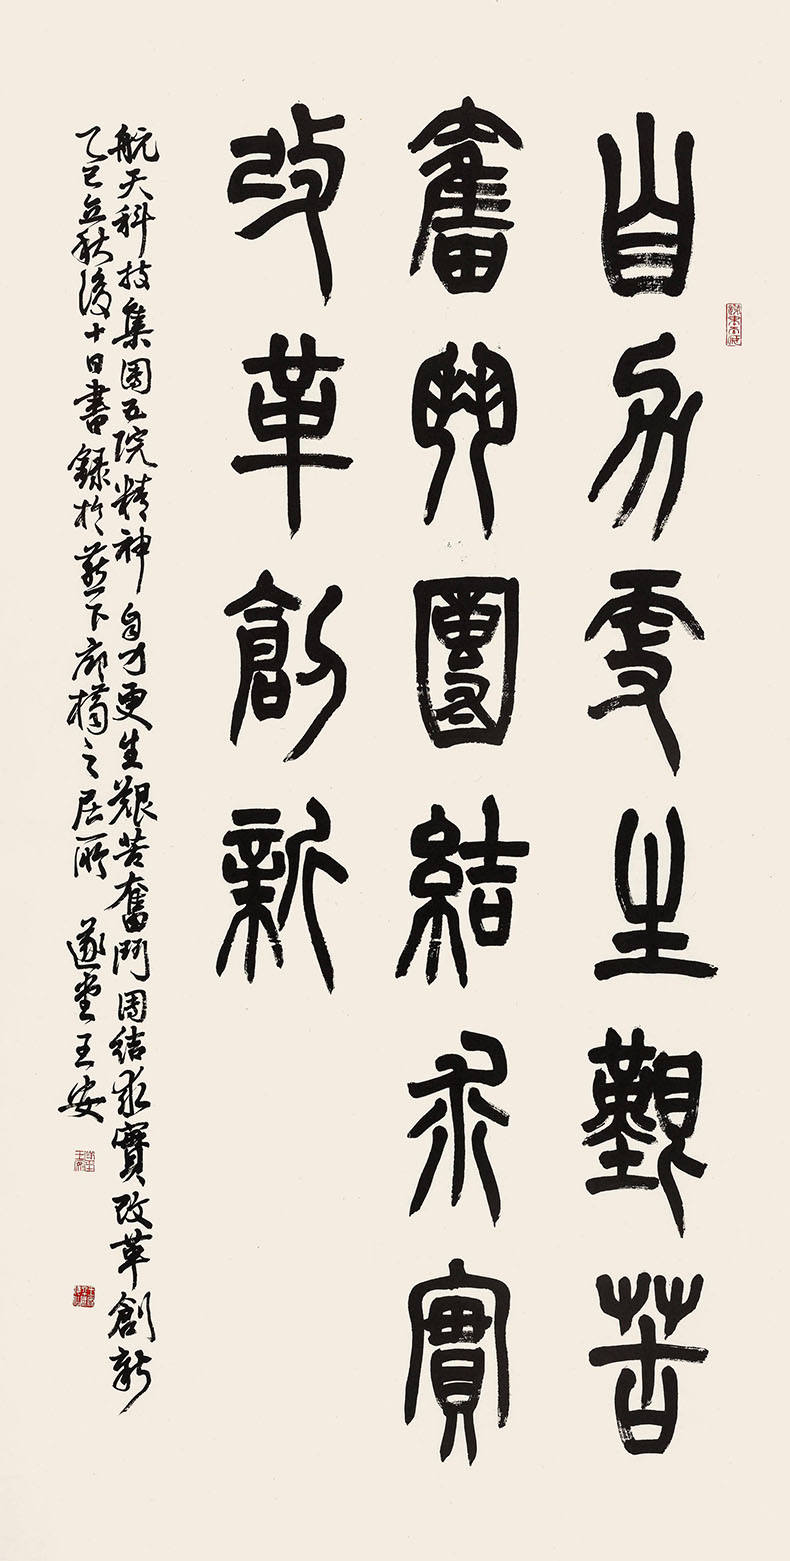 自力更生艱苦
奮鬥團結求實
改革創新
航天科技集團五院精神自力更生艱苦奮鬥團結求實改革創新
乙巳立秋後十日書録於燕下之居所 遂堂王安